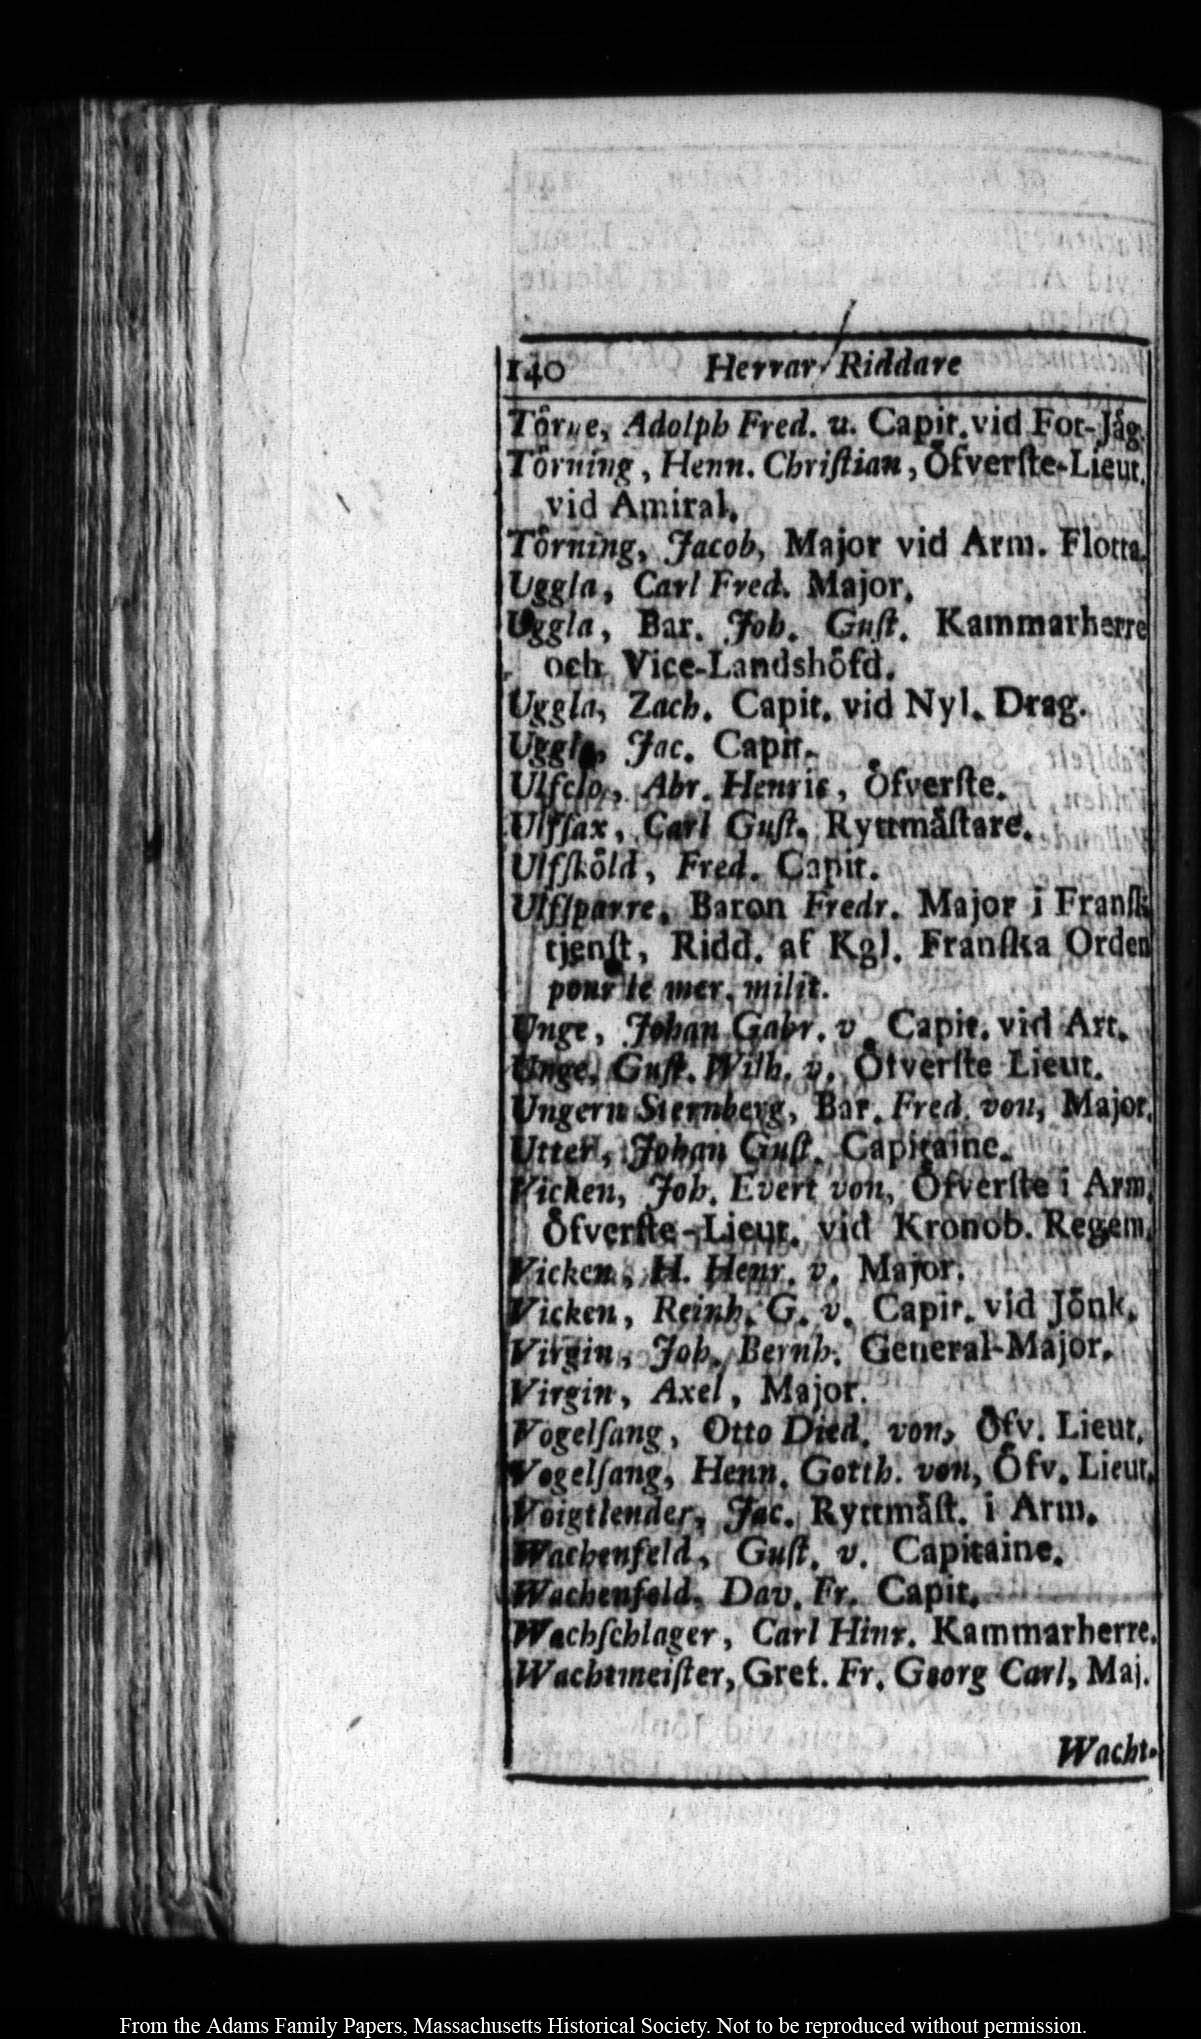 140 Herrar Riddare
Törne, Adolph Fred. u. Capit. vid Fot-Jåg.
Törning, Henn. Chriſtian, Öfverſte-Lieut.
vid Amiral.
Törning, Jacob, Major vid Arm. Flotta.
Uggla, Carl Fred. Major.
Uggla, Bar. Joh. Guſt. Kammarherre
och Vice-Landshöfd.
Uggla, Zach. Capit. vid Nyl. Drag.
Uggla, Jac. Capit.
Ulfclo, Abr. Henric, Öfverſte.
Ulfſax, Carl Guſt. Ryttmäſtare.
Ulfſköld, Fred. Capit.
Ulfſparre, Baron Fredr. Major i Franſk
tjenſt, Ridd. af Kgl. Franſka Orden
pour le mer. milit.
Unge, Johan Gabr. v. Capit. vid Art.
Unge, Guſt. Wilh. v. Öfverſte Lieut.
Ungern Sternberg, Bar. Fred. von, Major.
Utter, Johan Guſt. Capitaine.
Vicken, Joh. Evert von, Öfverſte i Arm.
Öfverſte-Lieut. vid Kronob. Regem.
Vicken, H. Henr. v. Major.
Vicken, Reinh. G. v. Capit. vid Jönk.
Virgin, Joh. Bernh. General-Major.
Virgin, Axel, Major.
Vogelſang, Otto Died. von, Öfv. Lieut.
Vogelſang, Henn. Gotth. von, Öfv. Lieut.
Voigtlender, Jac. Ryttmäſt. i Arm.
Wachenfeld, Guſt. v. Capitaine.
Wachenfeld, Dav. Fr. Capit.
Wachſchlager, Carl Hinr. Kammarherre.
Wachtmeiſter, Gref. Fr. Georg Carl, Maj.
Wacht-
From the Adams Family Papers, Massachusetts Historical Society. Not to be reproduced without permission.